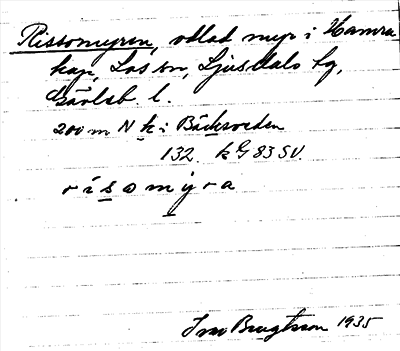 Rissomyren, odlad myr i Hamra
kap, Los sn, Ljusdals tg,
Gävleb l.
200 m N k i Bäcksveden
132. k G 83 SV.
r í s o m y r a
Bengtsson 1935